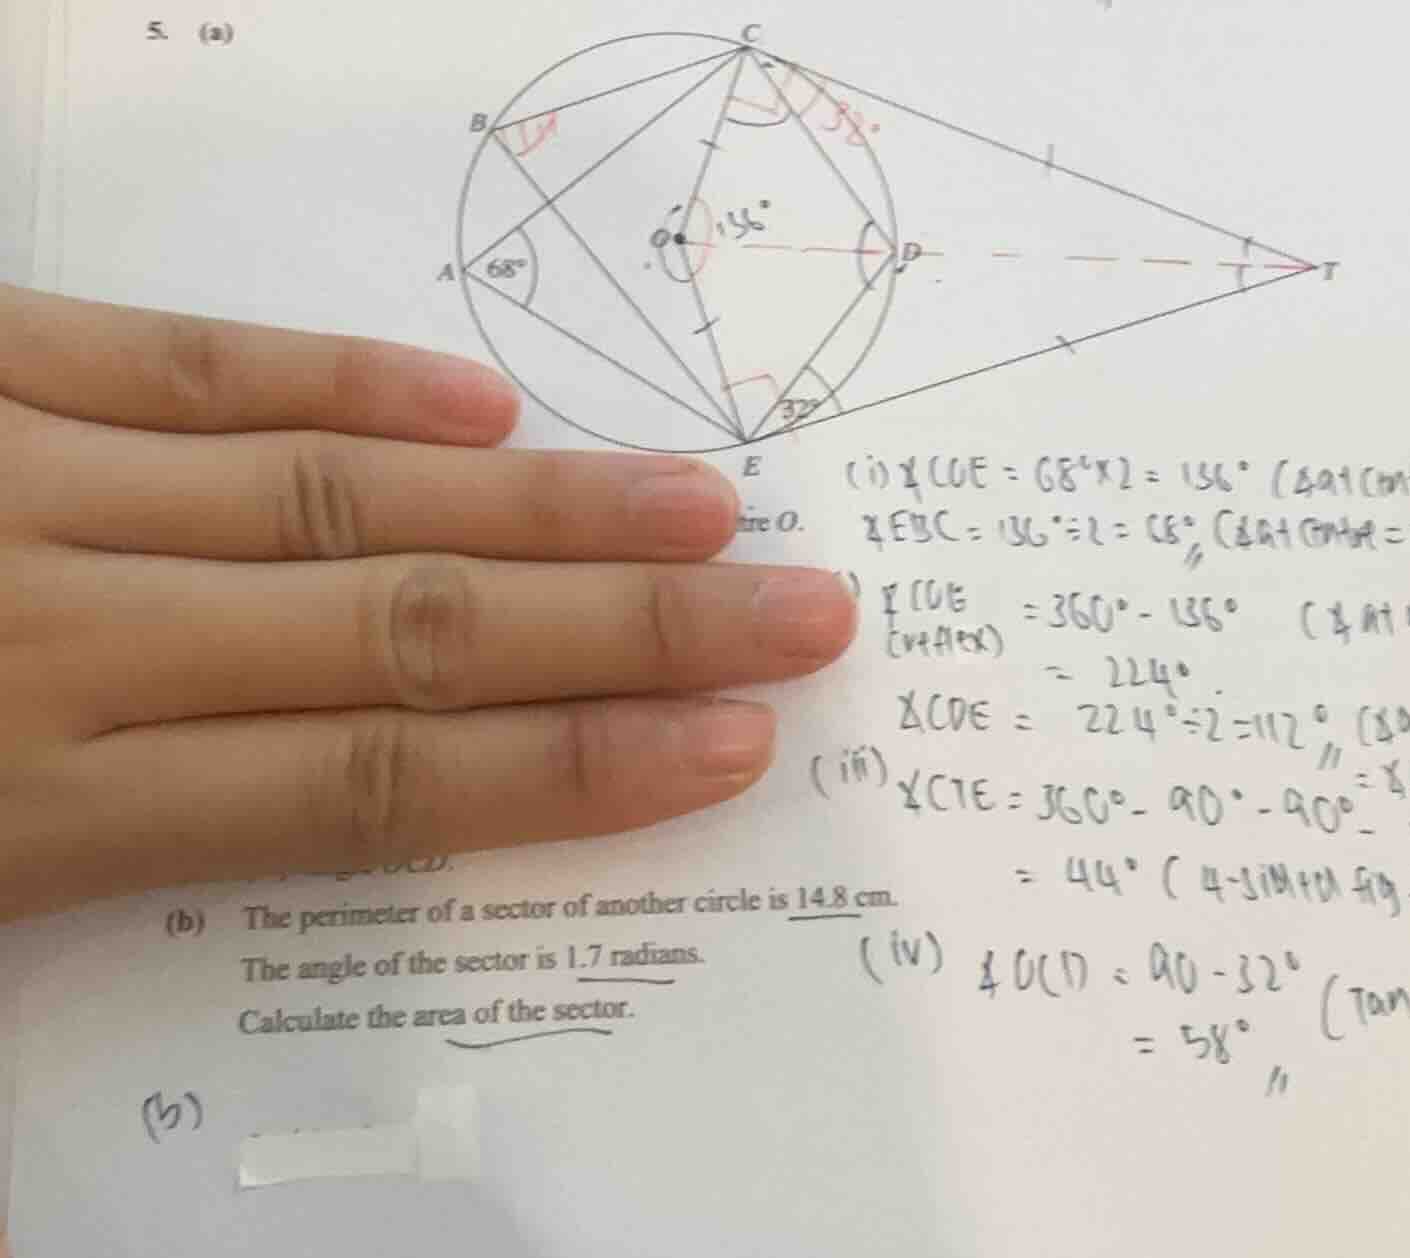 5. (a)
C
B
32°
O
136°
D
A
68°
T
32°
E
(i) ∡COE = 68° × 2 = 136° (∡ at
tre O.
∡EBC = 136° ÷ 2 = 68° (∡ at centre =
∡COE = 360° - 136° (∡ at
(reflex)
= 224°
∡CDE = 224° ÷ 2 = 112°
(iii) ∡CTE = 360° - 90° - 90° -
= 44° (4-sided fig
OCD.
(b) The perimeter of a sector of another circle is 14.8 cm.
The angle of the sector is 1.7 radians.
Calculate the area of the sector.
(iv) ∡OCD = 90 - 32° (Tan
= 58°
(b)